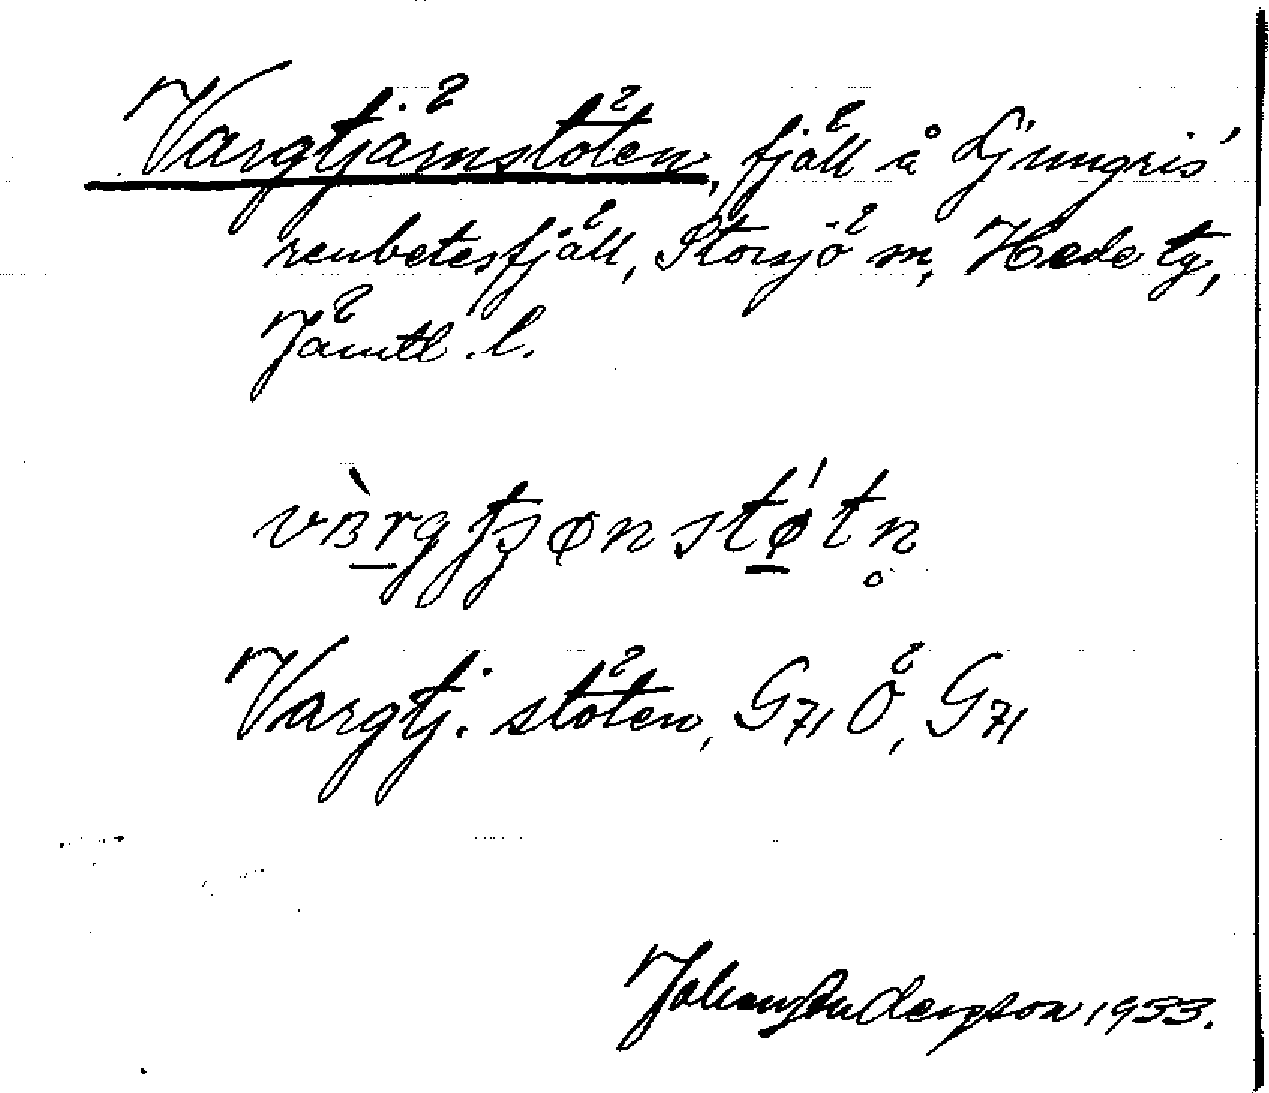 Vargtjärnstöten, fjäll å Ljungris'
renbetesfjäll, Storsjö sn, Hede tg,
Jämtl. l.
vàrgtʒønstǿtn̥
Vargtj. stöten, G71 Ö, G71
Johan Andersson 1933.